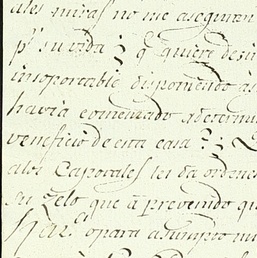 ales miras no me aseguran
pr. su vida ; q. quiere desir
insoportable disponiendo a
havia comensado a determin
veneficio de esta casa ? ;
alos Caporales les da ordene
su zelo que a prevenido qu
opara asumpto mi